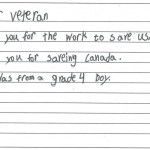 veteran
you for the work to save us
you for saveing Canada.
was from a grade 4 boy.